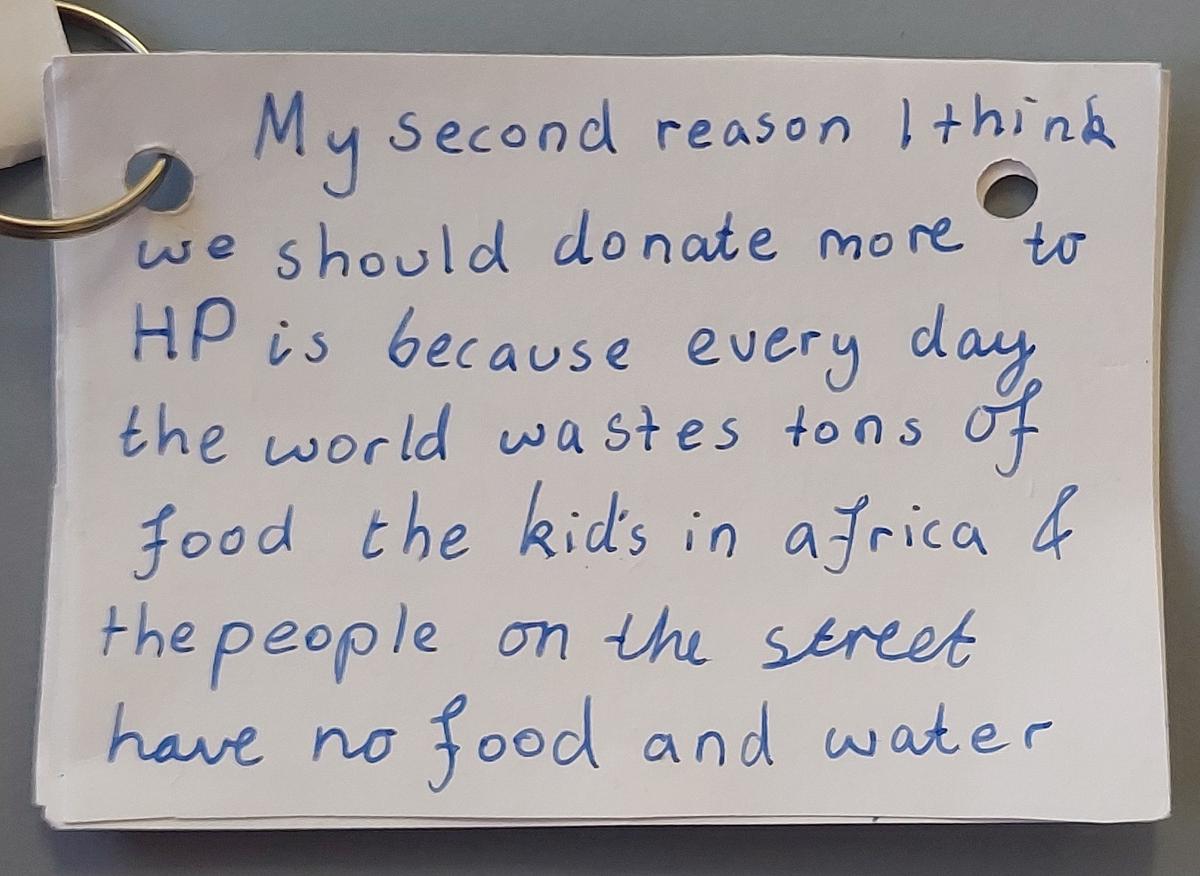 My second reason I think
we should donate more to
HP is because every day
the world wastes tons of
food the kid's in africa &
the people on the street
have no food and water